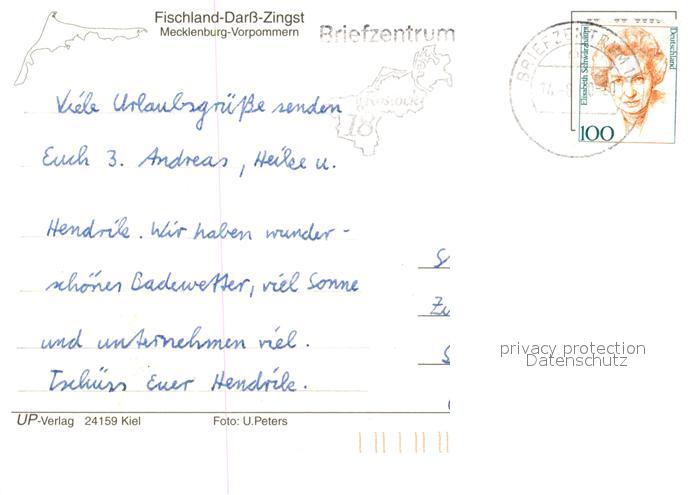 Fischland-Darß-Zingst
Mecklenburg-Vorpommern
Briefzentrum
18
ROSTOCK
BRIEFZENTRUM
Elisabeth Schwarzhaupt
Deutschland
100
Viele Urlaubsgrüße senden
Euch 3. Andreas, Heike u.
Hendrik. Wir haben wunder-
schönes Badewetter, viel Sonne
und unternehmen viel.
Tschüss Euer Hendrik.
privacy protection
Datenschutz
UP-Verlag 24159 Kiel Foto: U.Peters